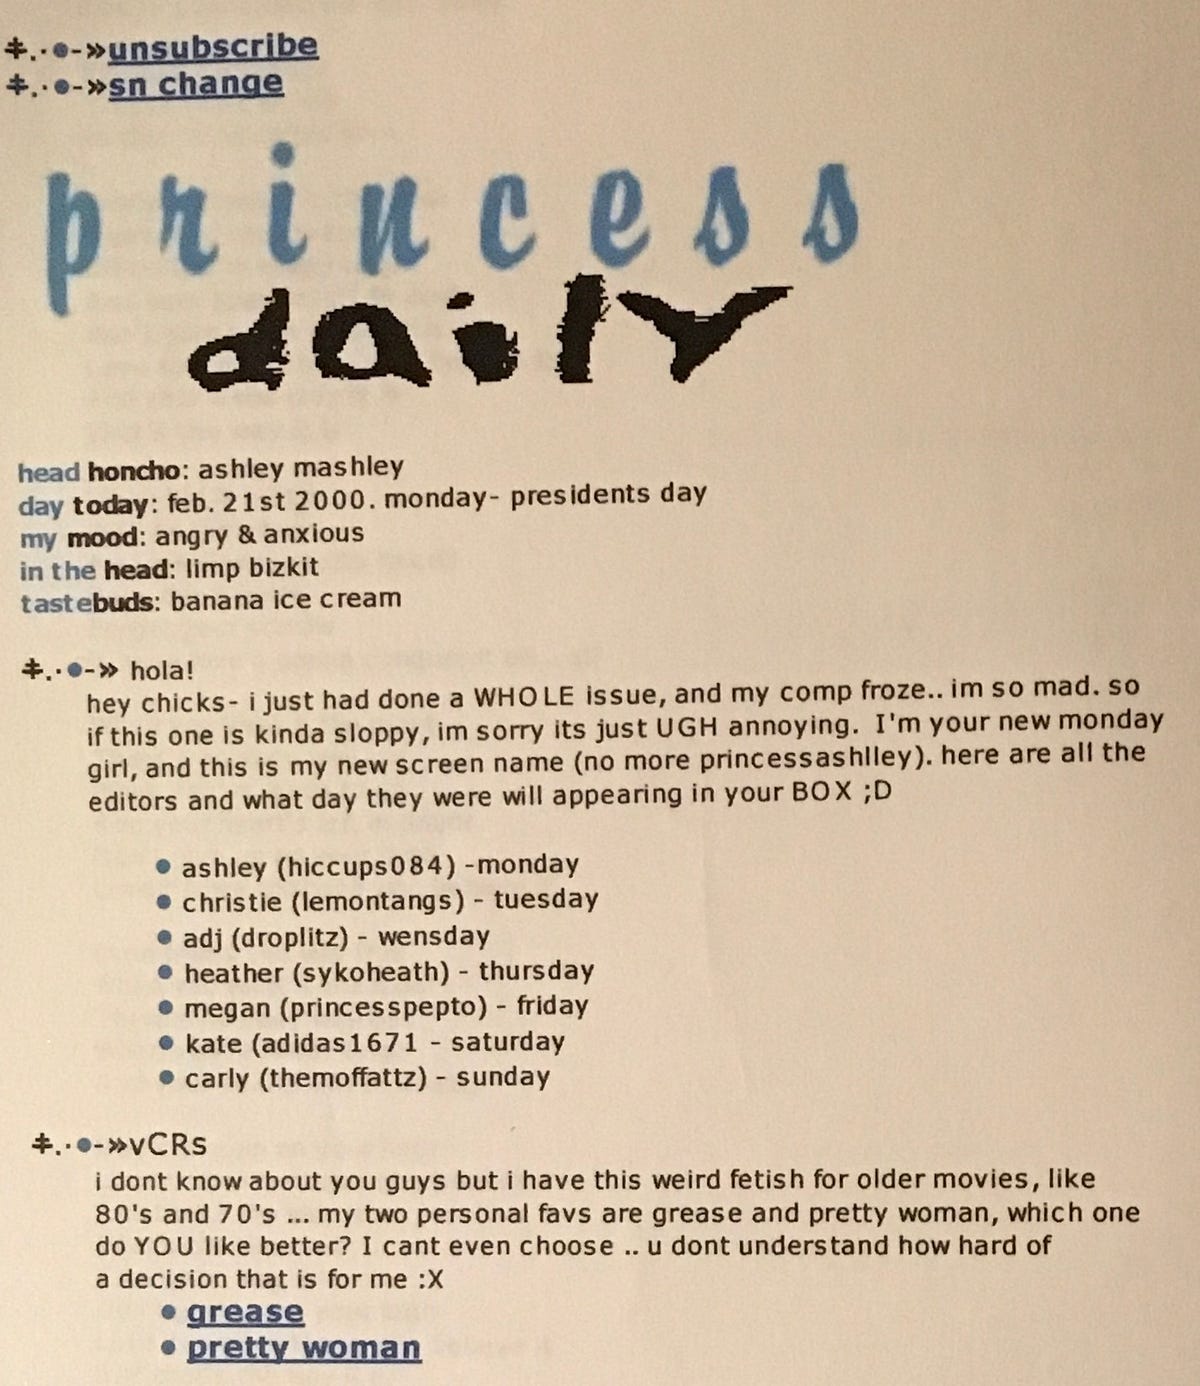 ‡.·●-»unsubscribe
‡.·●-»sn change
princess
daily
head honcho: ashley mashley
day today: feb. 21st 2000. monday- presidents day
my mood: angry & anxious
in the head: limp bizkit
tastebuds: banana ice cream
‡.·●-» hola!
hey chicks- i just had done a WHOLE issue, and my comp froze.. im so mad. so
if this one is kinda sloppy, im sorry its just UGH annoying. I'm your new monday
girl, and this is my new screen name (no more princessashlley). here are all the
editors and what day they were will appearing in your BOX ;D
● ashley (hiccups084) -monday
● christie (lemontangs) - tuesday
● adj (droplitz) - wensday
● heather (sykoheath) - thursday
● megan (princesspepto) - friday
● kate (adidas1671 - saturday
● carly (themoffattz) - sunday
‡.·●-»vCRs
i dont know about you guys but i have this weird fetish for older movies, like
80's and 70's ... my two personal favs are grease and pretty woman, which one
do YOU like better? I cant even choose .. u dont understand how hard of
a decision that is for me :X
● grease
● pretty woman